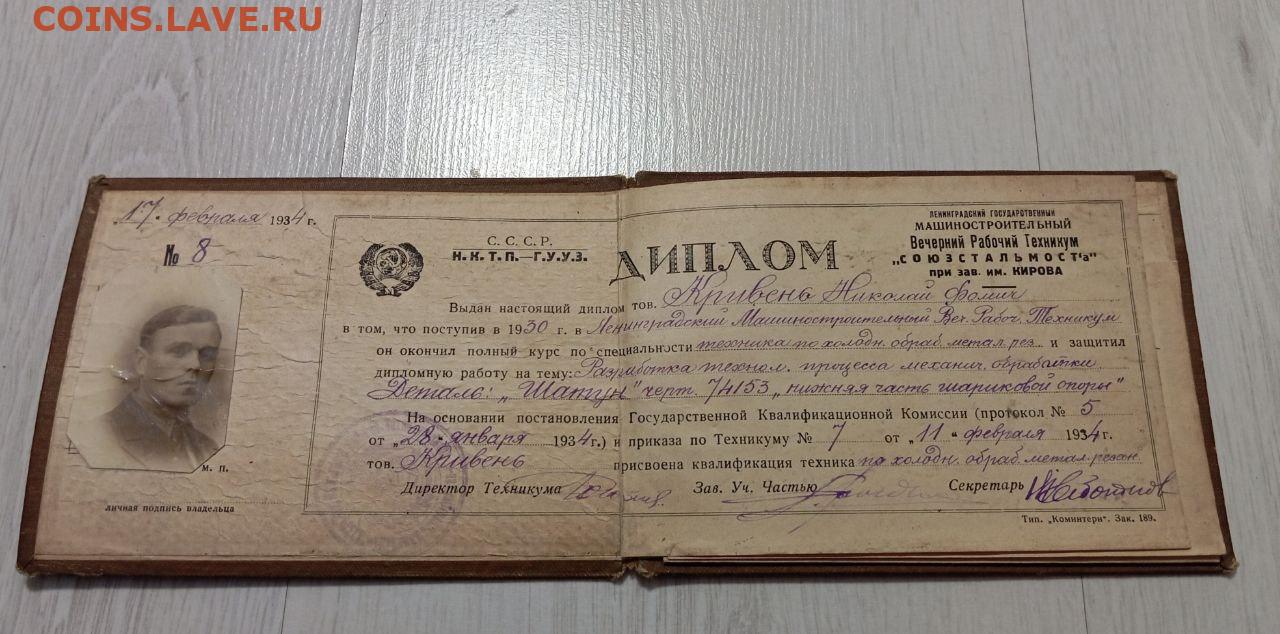 COINS.LAVE.RU
17 февраля 1934 г.
№ 8
м. п.
личная подпись владельца
С. С. С. Р.
Н. К. Т. П.—Г. У. У. З.
ДИПЛОМ
ЛЕНИНГРАДСКИЙ ГОСУДАРСТВЕННЫЙ
МАШИНОСТРОИТЕЛЬНЫЙ
Вечерний Рабочий Техникум
„СОЮЗСТАЛЬМОСТ'а"
при зав. им. КИРОВА
Выдан настоящий диплом тов. Кривень Николай Фомич
в том, что поступив в 1930 г. в Ленинградский Машиностроительный Веч. Рабоч. Техникум
он окончил полный курс по специальности техника по холодн. обраб. метал. рез. и защитил
дипломную работу на тему: Разработка технол. процесса механич. обработки
Деталь: „Шатун" черт. 74153 „нижняя часть шариковой опоры"
На основании постановления Государственной Квалификационной Комиссии (протокол № 5
от „28" января 1934 г.) и приказа по Техникуму № 7 от „11" февраля 1934 г.
тов. Кривень присвоена квалификация техника по холодн. обраб. метал. резан.
Директор Техникума Зав. Уч. Частью Секретарь
Тип. „Коминтерн". Зак. 189.